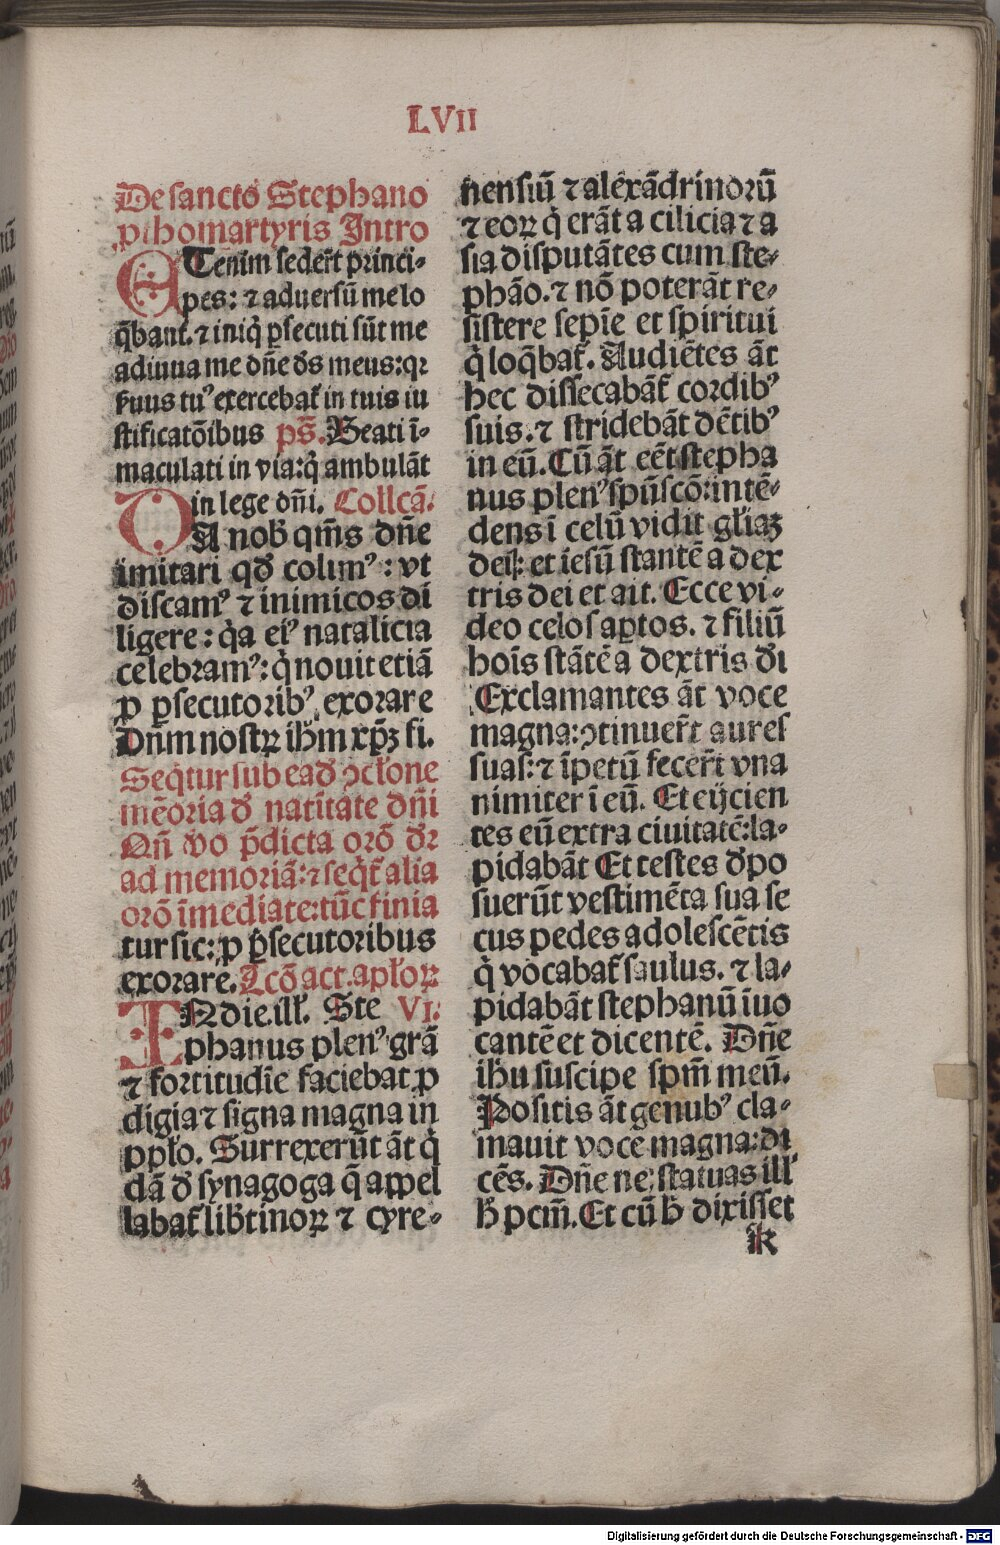 LVII
De sancto Stephano
ꝓthomartyris Intro
ETenim sedert̄ princi-
pes: ⁊ aduersū me lo
q̄bant᷑. ⁊ iniq̇ ꝑsecuti sūt me
adiuua me dn̄e ds̄ meus: qꝛ
ẜuus tuꝰ exercebat᷑ in tuis iu
stificatōibus ps̄. Beati ī-
maculati in via: q̇ ambulāt
in lege dn̄i. Collcā.
DA nob̄ qm̄s dn̄e
imitari qd̄ colimꝰ: vt
discamꝰ ⁊ inimicos di
ligere: q̇a eiꝰ natalicia
celebramꝰ: q̇ nouit etiā
ꝓ ꝑsecutoribꝰ exorare
Dn̄m nostꝝ ih̄m xp̄ꝫ fi.
Seq̇tur sub ead̄ ↄcl̄one
mēoria d̄ natītate dn̄i
Qn̄ v̄o p̄dicta orō d̄r
ad memoriā: ⁊ seq̇t᷑ alia
orō īmediate: tūc finia
tur sic: ꝓ ꝑsecutoribus
exorare. Lcō act. apl̄oꝝ
IN die. ill̄. Ste VI.
phanus plenꝰ grā
⁊ fortitudīe faciebat ꝓ
digia ⁊ signa magna in
ppl̄o. Surrexerūt āt q̇
dā d̄ synagoga q̄ appel
labat᷑ lib̄tinoꝝ ⁊ cyre-
nensiū ⁊ alexādrinorū
⁊ eoꝝ q̇ erāt a cilicia ⁊ a
sia disputātes cum ste-
phāo. ⁊ nō poterāt re-
sistere sepīe et spiritui
q̇ loq̄bat᷑. Audiētes āt
hec dissecabāt᷑ cordibꝰ
suis. ⁊ stridebāt dētibꝰ
in eū. Cū āt eēt stepha
nus plenꝰ spūscō: intē-
dens ī celū vidit gl̄iaꝫ
dei: et iesū stantē a dex
tris dei et ait. Ecce vi-
deo celos aꝑtos. ⁊ filiū
hoīs stātē a dextris d̄i
Exclamantes āt voce
magna: ↄtinuer̄t aures
suas: ⁊ īpetū fecer̄t vna
nimiter ī eū. Et eijcien
tes eū extra ciuitatē: la-
pidabāt Et testes d̄po
suerūt vestimēta sua se
cus pedes adolescētis
q̇ vocabat᷑ saulus. ⁊ la-
pidabāt stephanū īuo
cantē et dicentē. Dn̄e
ih̄u suscipe spm̄ meū.
Positis āt genubꝰ cla-
mauit voce magna: di
cēs. Dn̄e ne statuas ill'
h̄ pcm̄. Et cū h̄ dixisset
k
Digitalisierung gefördert durch die Deutsche Forschungsgemeinschaft - DFG